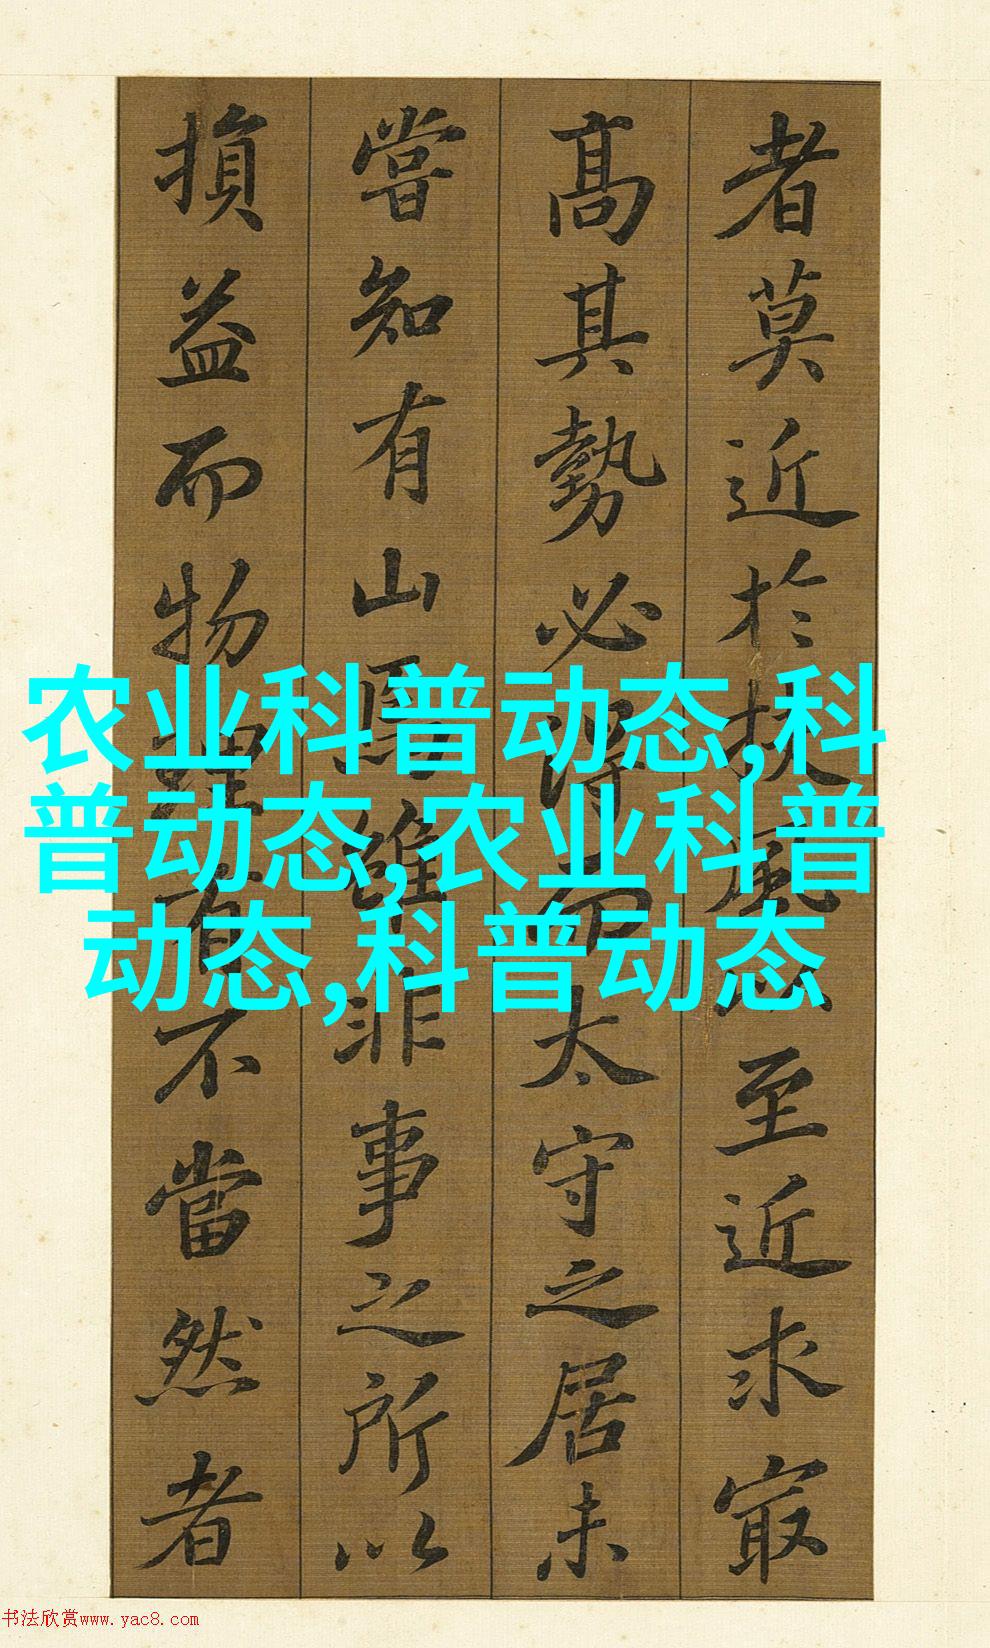 者莫近於扶風以至近求㝡
髙其勢必得而太守之居未
嘗知有山焉雖非事之所以
損益而物理有不當然者
农业科普动态,科
普动态,农业科普
动态,科普动态
书法欣赏www.yac8.com